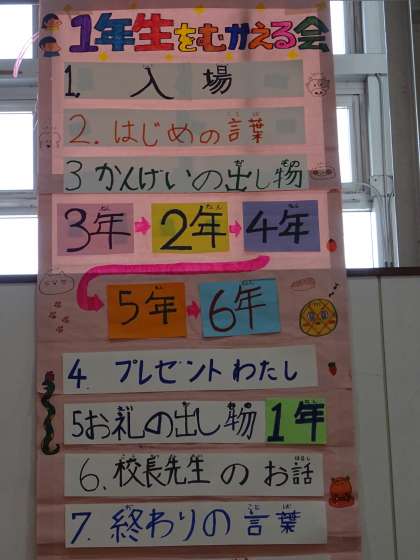 1年生をむかえる会
1. 入場
2. はじめの言葉
3 かんげいの出し物
3年 → 2年 → 4年
5年 → 6年
4. プレゼントわたし
5 お礼の出し物 1年
6. 校長先生のお話
7. 終わりの言葉